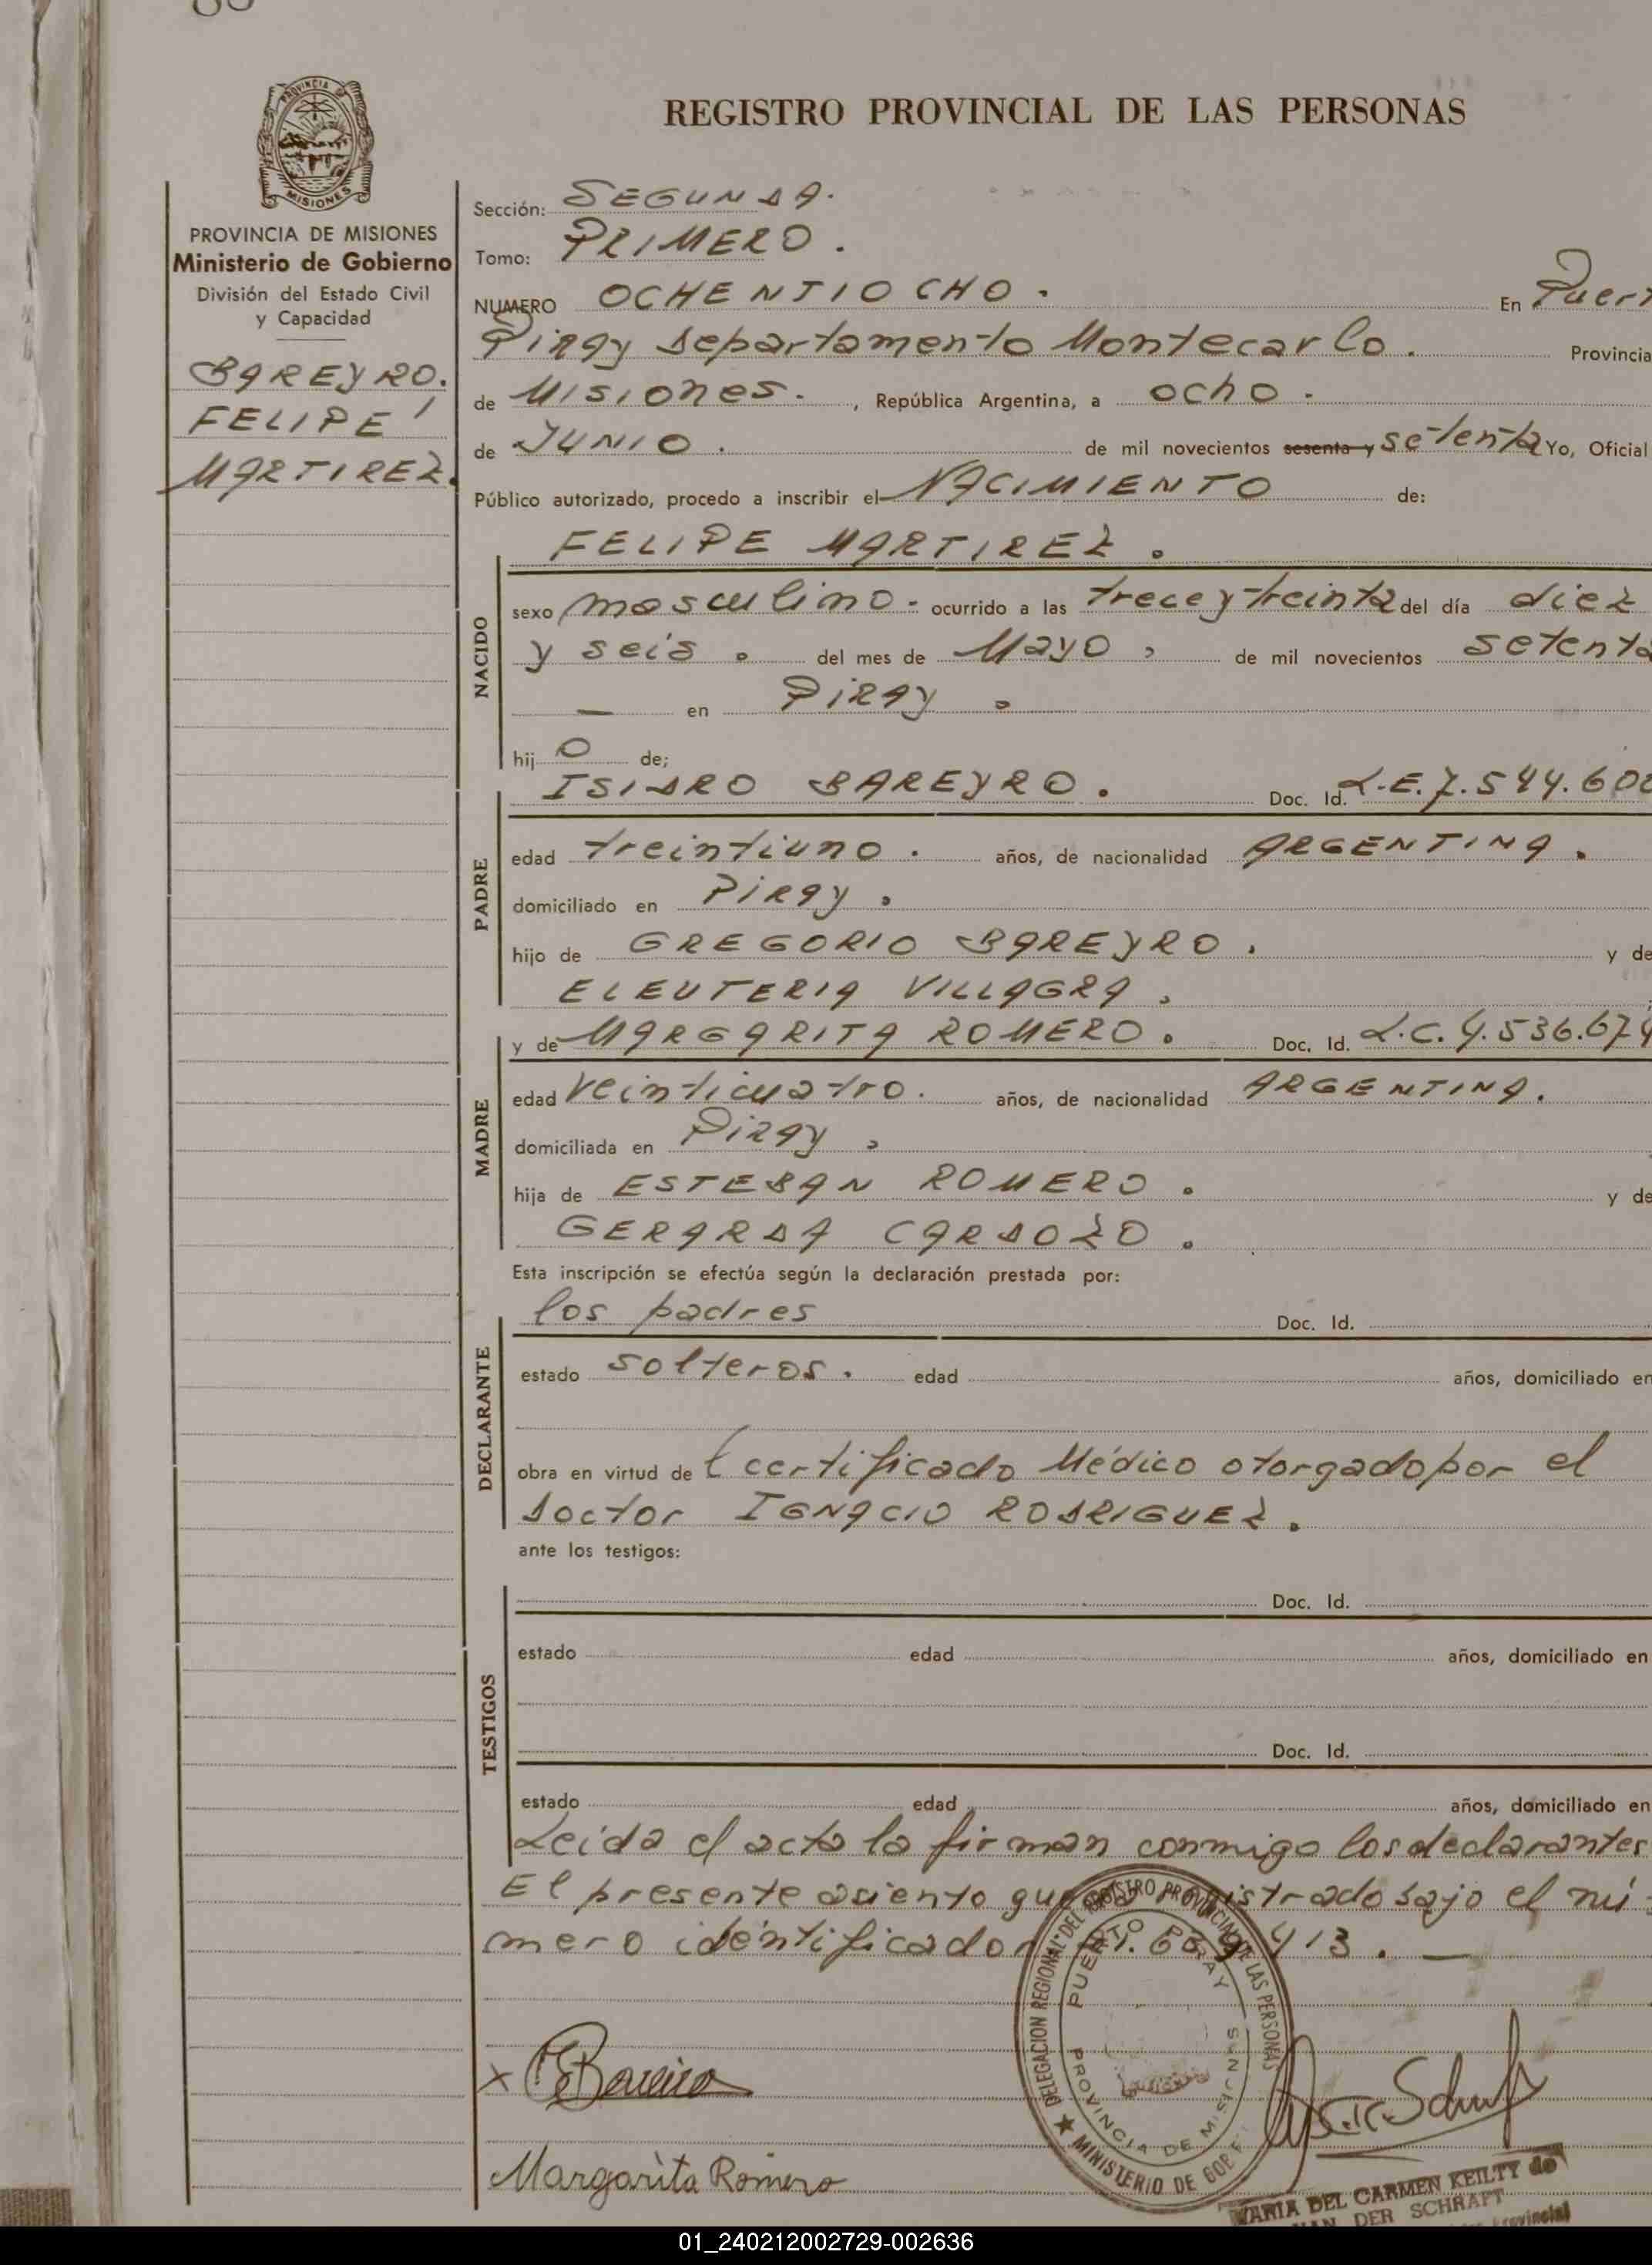 PROVINCIA
MISIONES
REGISTRO PROVINCIAL DE LAS PERSONAS
PROVINCIA DE MISIONES
Ministerio de Gobierno
División del Estado Civil
y Capacidad
BAREYRO.
FELIPE
MARTIREZ.
Sección: SEGUNDA.
Tomo: PRIMERO.
NUMERO OCHENTIOCHO. En Puert
Piray Departamento Montecarlo. Provincia
de Misiones. , República Argentina, a ocho.
de JUNIO. de mil novecientos sesenta y setenta Yo, Oficial
Público autorizado, procedo a inscribir el NACIMIENTO de:
FELIPE MARTIREZ.
NACIDO
sexo masculino. ocurrido a las trece y treinta del día diez
y seis. del mes de Mayo, de mil novecientos setenta
— en Piray.
hij o de;
PADRE
ISIDRO BAREYRO. Doc. Id. L.E. 7.544.60
edad treintiuno. años, de nacionalidad ARGENTINA.
domiciliado en Piray.
hijo de GREGORIO BAREYRO. y de
ELEUTERIA VILLAGRA,
MADRE
y de MARGARITA ROMERO. Doc. Id. L.C. 4.536.674
edad veinticuatro. años, de nacionalidad ARGENTINA.
domiciliada en Piray,
hija de ESTEBAN ROMERO. y de
GERARDA CARDOZO.
Esta inscripción se efectúa según la declaración prestada por:
DECLARANTE
los padres Doc. Id.
estado solteros. edad años, domiciliado en
obra en virtud de certificado Médico otorgado por el
Doctor IGNACIO RODRIGUEZ.
ante los testigos:
TESTIGOS
Doc. Id.
estado edad años, domiciliado en
Doc. Id.
estado edad años, domiciliado en
Leida el acta la firman conmigo los declarantes
El presente asiento registrado bajo el nú
mero identificador 413. —
DELEGACION REGIONAL DEL REGISTRO PROVINCIAL DE LAS PERSONAS
PUERTO PIRAY
PROVINCIA DE MISIONES
★ MINISTERIO DE GOB
x Bareiro
Margarita Romero
MARIA DEL CARMEN KEILTY de
DER SCHRAFT
Provincial
01_240212002729-002636